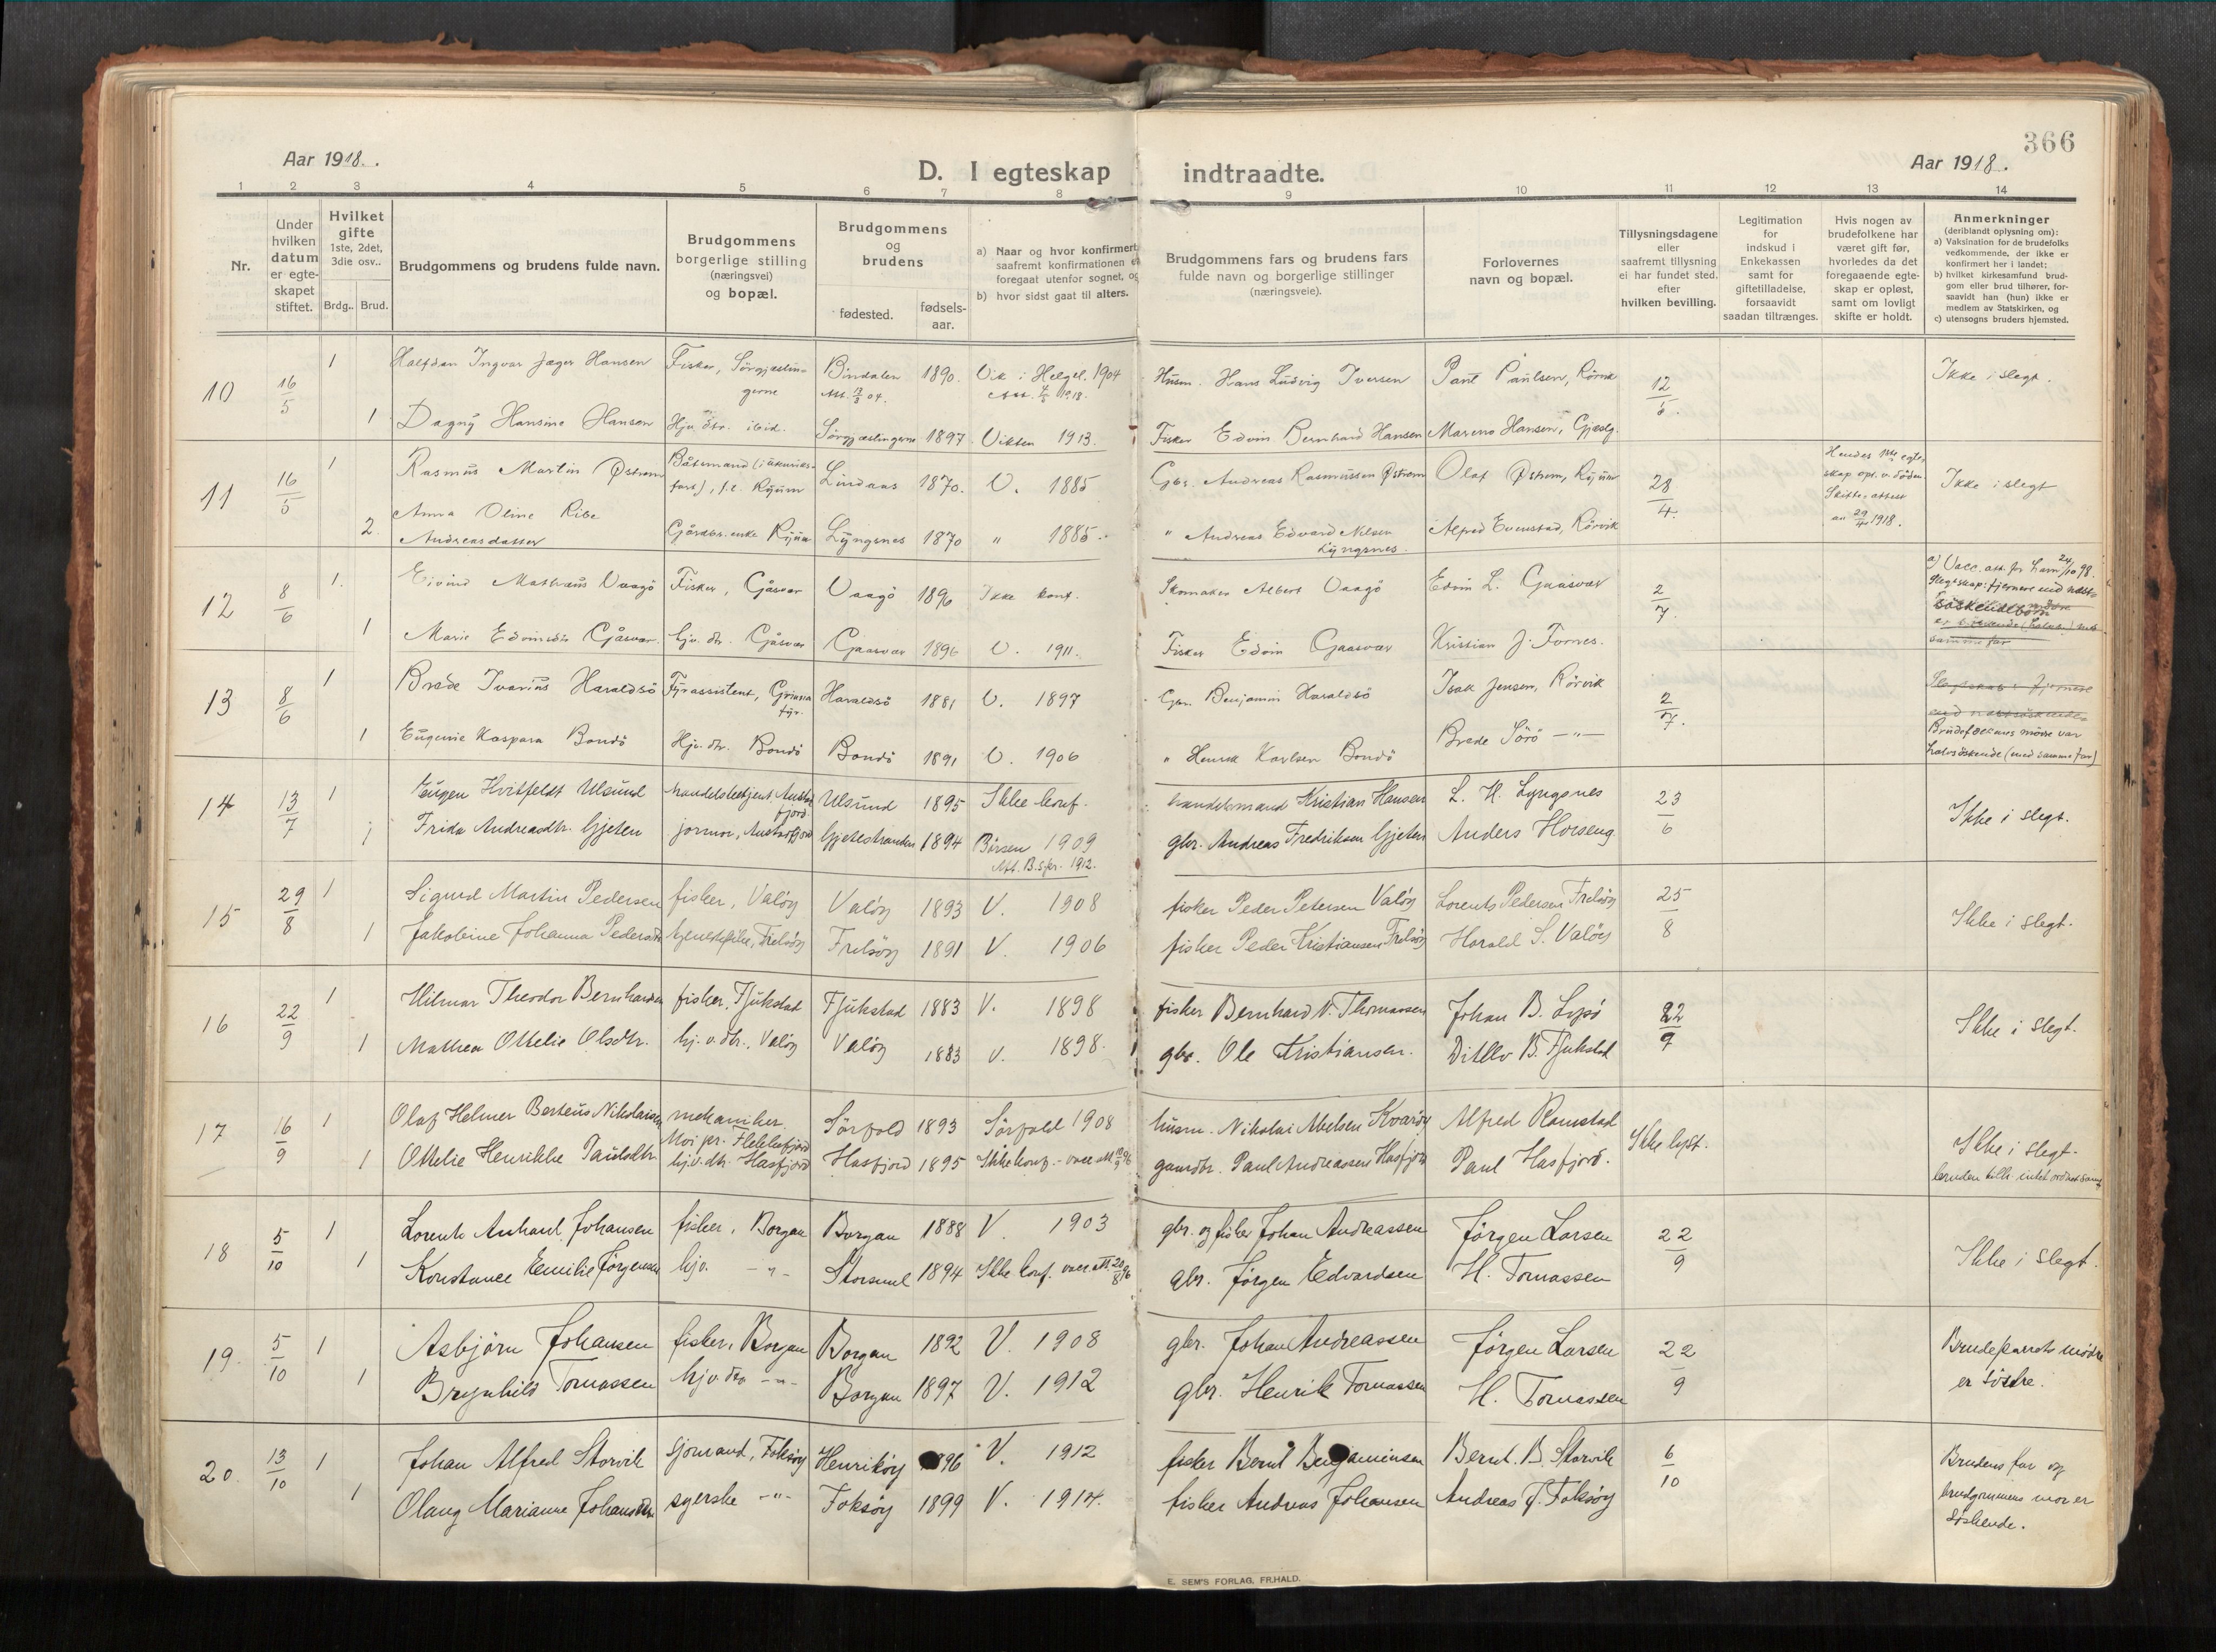 366
Aar 1918.
D. I egteskap indtraadte.
Aar 1918.
1 2 3 4 5 6 7 8 9 10 11 12 13 14
Nr.
Under hvilken datum er egte-skapet stiftet.
Hvilket gifte 1ste, 2det, 3die osv..
Brdg.. Brud.
Brudgommens og brudens fulde navn.
Brudgommens borgerlige stilling (næringsvei) og bopæl.
Brudgommens og brudens
fødested.
fødsels-aar.
a) Naar og hvor konfirmert
saafremt konfirmationen
foregaat utenfor sognet, og
b) hvor sidst gaat til alters.
Brudgommens fars og brudens fars
fulde navn og borgerlige stillinger
(næringsveie).
Forlovernes
navn og bopæl.
Tillysningsdagene
eller
saafremt tillysning
ei har fundet sted,
efter
hvilken bevilling.
Legitimation
for
indskud i
Enkekassen
samt for
giftetilladelse,
forsaavidt
saadan tiltrænges.
Hvis nogen av
brudefolkene har
været gift før,
hvorledes da det
foregaaende egte-
skap er opløst,
samt om lovligt
skifte er holdt.
Anmerkninger
(deriblandt oplysning om):
a) Vaksination for de brudefolks
vedkommende, der ikke er
konfirmert her i landet;
b) hvilket kirkesamfund brud-
gom eller brud tilhører, for-
saavidt han (hun) ikke er
medlem av Statskirken, og
c) utensogns bruders hjemsted.
10 16/5 1 Halfdan Ingvar Jæger Hansen Fisker, Sörgjæslin-gerne Bindalen 1890. Vik i Helgel. 1904 Husm. Hans Ludvig Iversen Paul Paulsen, Rörvik 12/5. Ikke i slegt.
1 Dagny Hansine Hansen Hjv. dtr. ibid. Sörgjæslingerne 1897 Vikten 1913. Fisker Edvin Bernhard Hansen Mareno Hansen, Gjæslg.
11 16/5 1 Rasmus Martin Østrem Båtsmand Lindaas 1870. V. 1885 Gbr. Andreas Rasmussen Østrem Olaf Østrem, Ryum 28/4. Hendes 1ste egte-skap opl. v. döden Skifte-attest av 29/4 1918. Ikke i slegt
2. Anna Oline Ribe Andreasdatter Gårdbr. enke Ryum Lyngsnes 1870 " 1885. " Andreas Edvard Nilsen Lyngsnes. Alfred Evenstad, Rörvik
12 8/6 1. Eivind Mathæus Vaagö Fisker, Gåsvær Vaagö 1896 Ikke konf. Skomaker Albert Vaagö Edvin L. Gaasvær 2/7. a) Vacc. att. for ham 24/10 98. Slegtskap: fjernere end næst-söskendebörn
1 Marie Edvinsdtr Gåsvær. hjv. dtr. Gåsvær Gaasvær 1896 V. 1911. Fisker Edvin Gaasvær Kristian J. Fornes.
13 8/6 1 Brede Ivarius Haraldsö Fyrassistent, Grinna fyr. Haraldsö 1881 V. 1897 Gbr. Benjamin Haraldsö Isak Jensen, Rörvik 2/7. Slegtskab: fjernere end næstsöskende-
1 Eugenie Kaspara Bondö Hjv. dtr. Bondö Bondö 1891 V. 1906 " Henrik Karlsen Bondö Brede Sörö —"— Brudefolkenes mödre var halvsöskende (med samme far)
14 13/7 1 Eugen Hvitfeldt Ulsund handelsbetjent, Austrafjord. Ulsund 1895 Ikke konf. handelsmand Kristian Hansen L. H. Lyngsnes 23/6 Ikke i slegt.
1 Frida Andreasdtr. Gjeten jormor, Austrafjord Gjetestranden 1894 Börsen 1909 gbr. Andreas Fredriksen Gjeten Anders Horseng
15 29/8 1 Sigurd Martin Pedersen fisker, Valöy Valöy 1893 V. 1908 fisker Peder Petersen Valöy Lorents Pedersen Frelsöy 25/8 Ikke i slegt.
1 Jakobine Johanna Pedersdtr tjenestepike, Frelsöy Frelsöy 1891 V. 1906 fisker Peder Kristiansen Frelsöy Harald S. Valöy
16 22/9 1 Hilmar Theodor Bernhardsen fisker, Fjukstad Fjukstad 1883 V. 1898 fisker Bernhard N. Thomassen Johan B. Lysö 22/9 Ikke i slegt.
1 Mathea Ottelie Olsdtr. hj. v. dtr., Valöy Valöy 1883 V. 1898. gbr. Ole Kristiansen. Ditlev B. Fjukstad
17 16/9 1 Olaf Helmer Berteus Nikolaisen mekaniker. Moi pr. Flekkefjord Sörfold 1893 Sörfold 1908 husm. Nikolai Abelsen Kvaröy Alfred Ramstad Ikke lyst. Ikke i slegt.
1 Ottelie Henrikke Paulsdtr. hjv. dtr. Hasfjord Hasfjord 1895 Ikke konf. gaardbr. Paul Andreassen Hasfjord Paul Hasfjord. bruden tilh. intet ordnet samf.
18 5/10 1 Lorents Anhard Johansen fisker, Borgan Borgan 1888 V. 1903 gbr. og fisker Johan Andreassen Jörgen Larsen 22/9 Ikke i slegt.
1 Konstance Emilie Jörgensen hjv. —"— Storsund 1894 Ikke konf. vacc. att. 20/8 96 gbr. Jörgen Edvardsen H. Tomassen
19. 5/10 1 Asbjörn Johansen fisker, Borgan Borgan 1892 V. 1908 gbr. Johan Andreassen Jörgen Larsen 22/9 Brudeparrets mödre er söstre.
1 Brynhild Tomassen hjv. dtr —"— Borgan 1897 V. 1912 gbr. Henrik Tomassen H. Tomassen
20. 13/10 1 Johan Alfred Storvik sjömand, Foksöy Henriköy 1896 V. 1912 fisker Bernt Benjaminsen Bernt. B. Storvik 6/10 Brudens far og brudgommens mor er söskende.
1 Olaug Marianne Johansdtr. syerske —"— Foksöy 1899 V. 1914. fisker Andreas Johansen Andreas J. Foksöy
E. SEM'S FORLAG, FR.HALD.